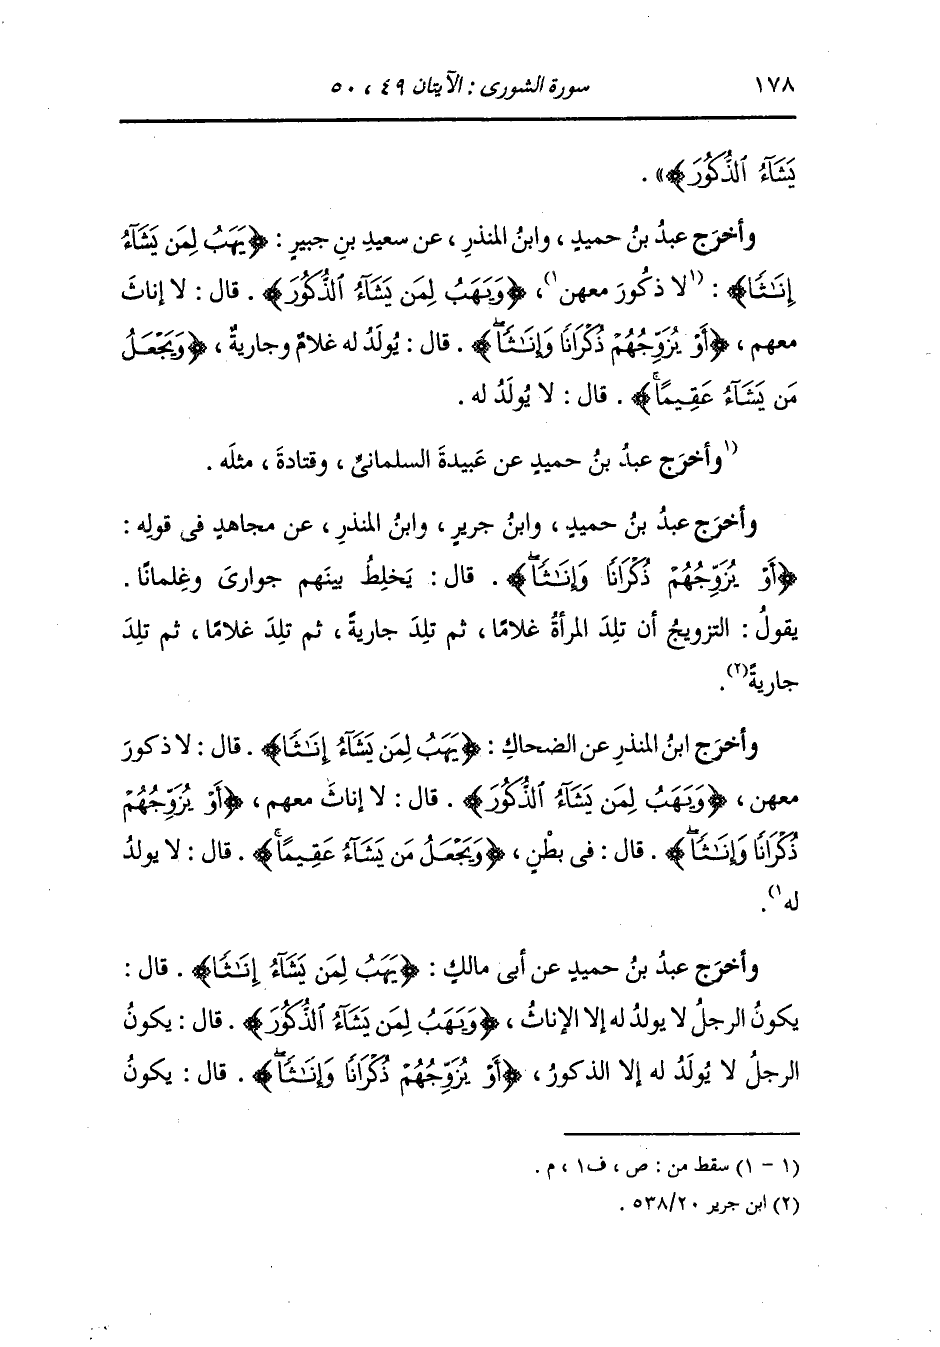 ١٧٨ سورة الشورى : الآيتان ٤٩ ، ٥٠
يَشَآءُ ٱلذُّكُورَ﴾» .
وأخرَج عبدُ بنُ حميدٍ ، وابنُ المنذرِ ، عن سعيدِ بنِ جبيرٍ : ﴿يَهَبُ لِمَن يَشَآءُ
إِنَٰثًا﴾ : (١لا ذكُورَ معهن١) ، ﴿وَيَهَبُ لِمَن يَشَآءُ ٱلذُّكُورَ﴾ . قال : لا إناثَ
معهم ، ﴿أَوْ يُزَوِّجُهُمْ ذُكْرَانًا وَإِنَٰثًاۖ﴾ . قال : يُولَدُ له غلامٌ وجاريةٌ ، ﴿وَيَجْعَلُ
مَن يَشَآءُ عَقِيمًاۚ﴾ . قال : لا يُولَدُ له .
(١وأخرَج عبدُ بنُ حميدٍ عن عَبيدةَ السلمانىِّ ، وقتادةَ ، مثلَه .
وأخرَج عبدُ بنُ حميدٍ ، وابنُ جريرٍ ، وابنُ المنذرِ ، عن مجاهدٍ فى قولِه :
﴿أَوْ يُزَوِّجُهُمْ ذُكْرَانًا وَإِنَٰثًاۖ﴾ . قال : يَخلِطُ بينَهم جوارىَ وغِلمانًا .
يقولُ : التزويجُ أن تلِدَ المرأةُ غلامًا ، ثم تلِدَ جاريةً ، ثم تلِدَ غلامًا ، ثم تلِدَ
جاريةً(٢) .
وأخرَج ابنُ المنذرِ عن الضحاكِ : ﴿يَهَبُ لِمَن يَشَآءُ إِنَٰثًا﴾ . قال : لا ذكورَ
معهن ، ﴿وَيَهَبُ لِمَن يَشَآءُ ٱلذُّكُورَ﴾ . قال : لا إناثَ معهم ، ﴿أَوْ يُزَوِّجُهُمْ
ذُكْرَانًا وَإِنَٰثًاۖ﴾ . قال : فى بطْنٍ ، ﴿وَيَجْعَلُ مَن يَشَآءُ عَقِيمًاۚ﴾ . قال : لا يولدُ
له١) .
وأخرَج عبدُ بنُ حميدٍ عن أبى مالكٍ : ﴿يَهَبُ لِمَن يَشَآءُ إِنَٰثًا﴾ . قال :
يكونُ الرجلُ لا يولدُ له إلا الإناثُ ، ﴿وَيَهَبُ لِمَن يَشَآءُ ٱلذُّكُورَ﴾ . قال : يكونُ
الرجلُ لا يُولَدُ له إلا الذكورُ ، ﴿أَوْ يُزَوِّجُهُمْ ذُكْرَانًا وَإِنَٰثًاۖ﴾ . قال : يكونُ
(١ - ١) سقط من : ص ، ف١ ، م .
(٢) ابن جرير ٥٣٨/٢٠ .